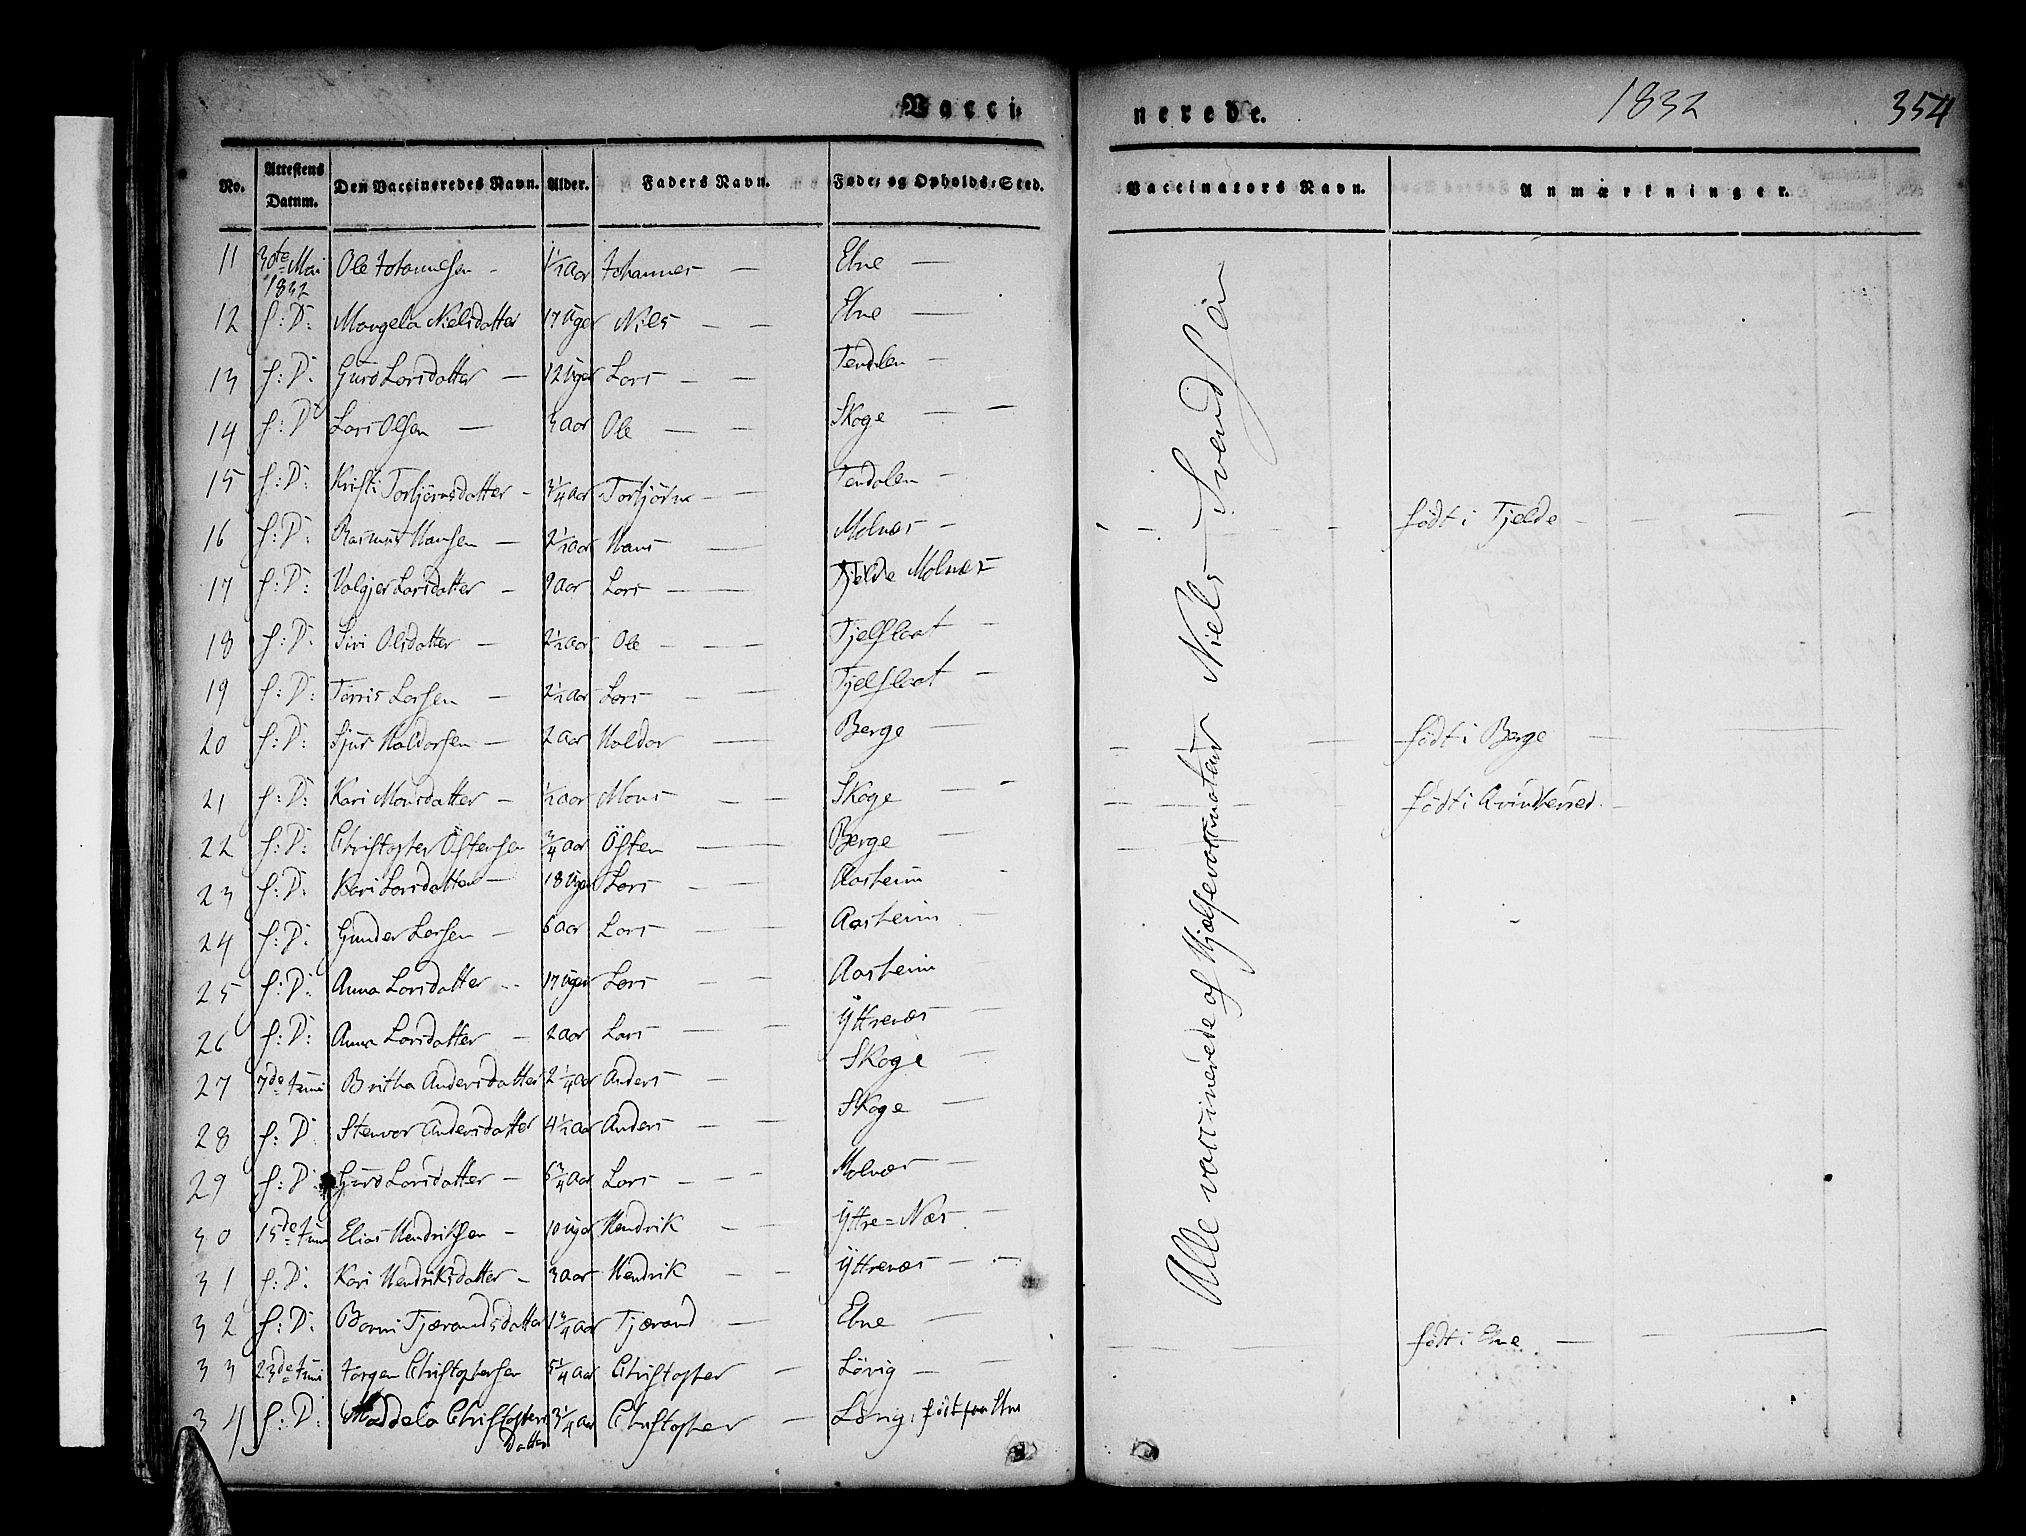 Vacci-
nerede.
1832
354
No. Attestens Datum. Den Vaccineredes Navn. Alder. Faders Navn. Føde- og Opholds-Sted. Vaccinators Navn. Anmærkninger.
11 30te Mai 1832 Ole Johannesen - 1/2 aar Johannes — Ebne —
12 f: D: Mangela Nielsdatter 17 Uger Niels — — Ebne —
13 f: D: Guro Larsdatter — 12 Uger Lars — — Tendalen —
14 f: D: Lars Olsen — 3 aar Ole — — Skoge — —
15 f: D: Kristi Torbjörnsdatter - 3/4 aar Torbjörn — Tendalen —
16 f: D: Rasmus Hansen — 2 1/2 aar Hans — Molnæs — födt i Tjelde —
17 f: D: Valgjer Larsdatter — 9 aar Lars — — Tjelde Molnæs
18 f: D: Siri Olsdatter — 2 1/2 aar Ole — — Tjelflaat —
19 f: D: Törris Larsen — 2 1/2 aar Lars — — Tjelflaat —
20 f: D: Sjur Haldorsen — 2 aar Haldor — Berge — födt i Berge —
21 f: D: Kari Monsdatter — 1/2 aar Mons — — Skoge — — födt i Qvinherred. —
22 f: D: Christopher Östensen 3/4 aar Östen — — Berge —
23 f: D: Kari Larsdatter — 18 Uger Lars — — Aasheim
24 f: D: Gunder Larsen — 6 aar Lars — — Aasheim —
25 f: D: Anna Larsdatter — 17 Uger Lars — — Aasheim —
26 f: D: Anna Larsdatter — 2 aar Lars — — Yttrenæs —
27 7de Juni Britha Andersdatter 2 1/4 aar Anders — Skoge —
28 f: D: Stenvor Andersdatter 4 1/2 aar Anders — — Skoge —
29 f: D: Guro Larsdatter — 6 3/4 aar Lars — — Molnæs —
30 15de Juni Elias Hendriksen — 10 Uger Hendrik — Yttre=Næs —
31 f: D: Kari Hendriksdatter — 3 aar Hendrik — — Yttrenæs — —
32 f: D: Tjærandsdatter 1 3/4 aar Tjærand — Ebne — födt i Ebne —
33 23de Juni Jörgen Christophersen 5 1/4 aar Christopher — Lövig —
34 f: D: Maddela Christophers Datter 3 1/4 aar Christopher — Lövig, födt
Alle vaccinerede af Hjælpevaccinatør Niels Svendsen